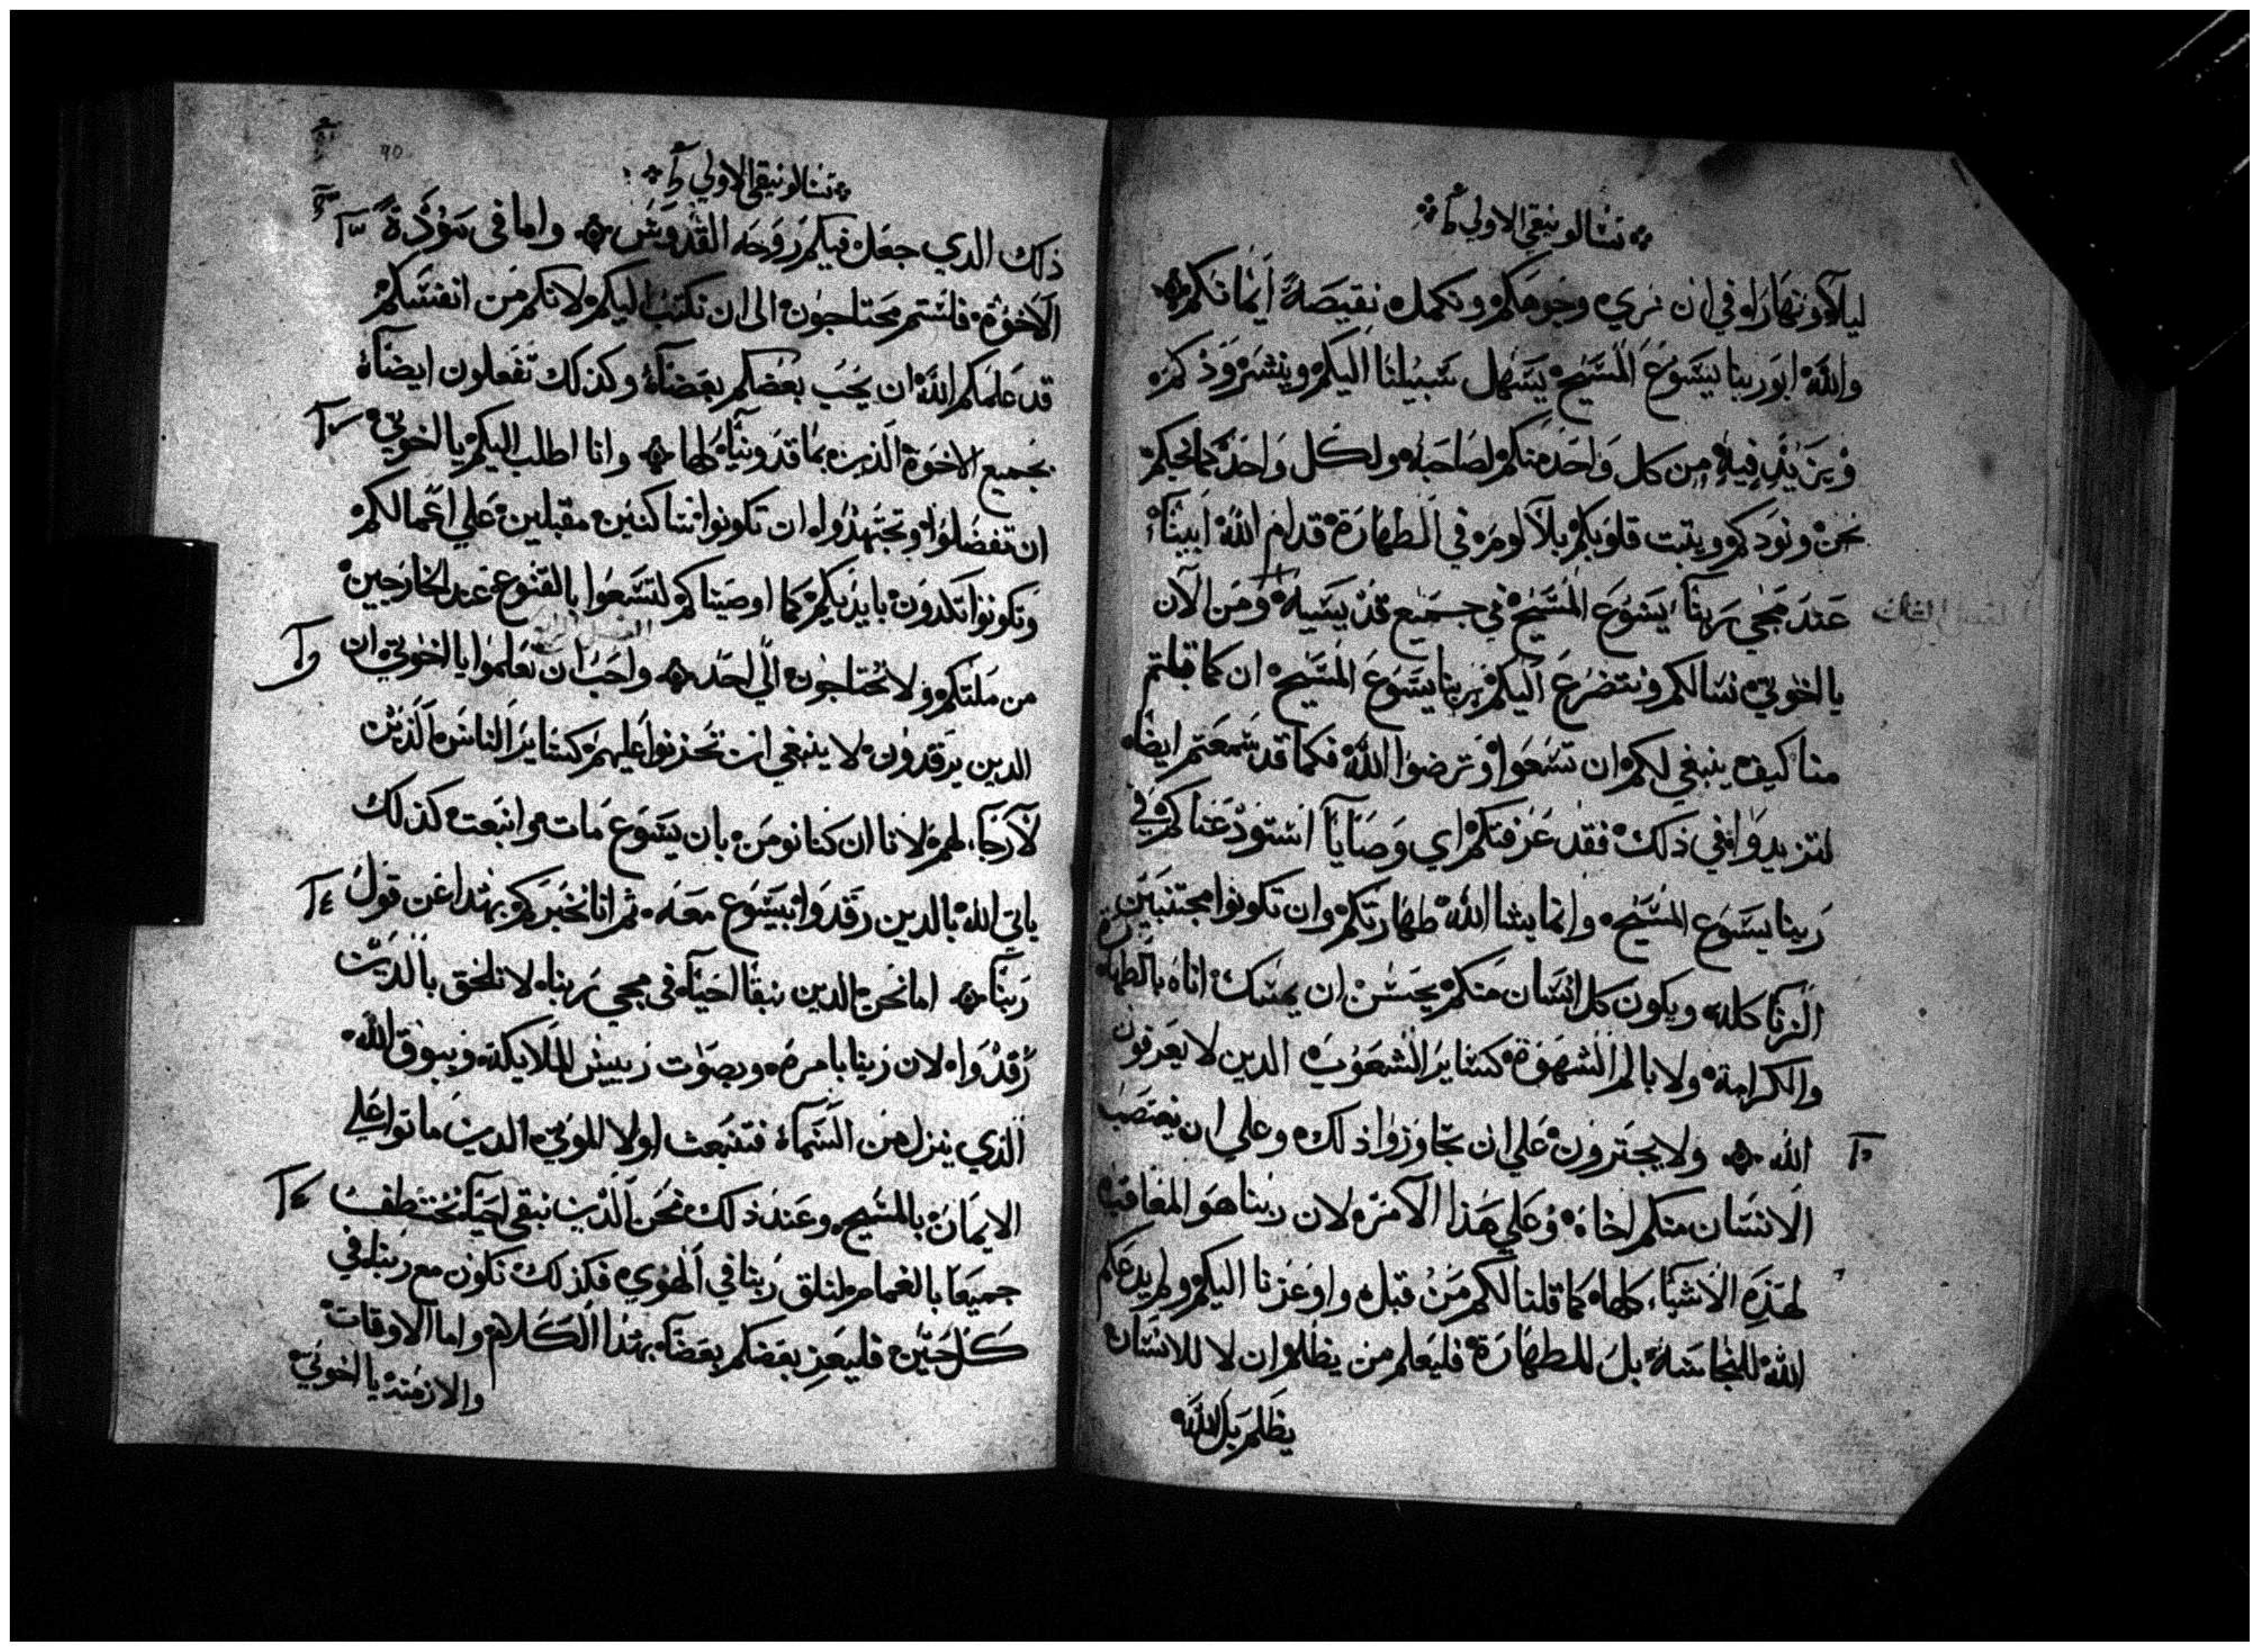 تسالونيقي الاولي
ليلا ونهارا في ان نري وجوهكم ونكمل نقيصة ايمانكم
والله ابو ربنا يسوع المسيح يسهل سبيلنا اليكم وينشر وذكم
ويزيد فيه من كل واحد منكم لصاحبه ولكل واحد كما نحبكم
نحن ونودكم ويتبت قلوبكم بلا لوم في الطهارة قدام الله ابينا
عند مجي ربنا يسوع المسيح في جميع قديسيه ومن الان
يا اخوتي نسالكم ونتضرع اليكم بربنا يسوع المسيح ان كما قبلتم
منا كيف ينبغي لكم ان تسعوا وترضوا الله فكما قد سمعتم ايضا
لتزيدوا في ذلك فقد عرفتكم اي وصايا استودعناكم في
ربنا يسوع المسيح وانما يشا الله طهارتكم وان تكونوا مجتنبين
الزنا كله ويكون كل انسان منكم يحسن ان يمسك اناه بالطهارة
والكرامة ولا بالم الشهوة كساير الشعوب الدين لا يعرفون
الله ولا يجترون علي ان تجاوزوا ذلك وعلي ان يغتصب
الانسان منكم اخاه وعلي هذا الامر لان ربنا هو المعاقب
لهذه الاشيا كلها كما قلنا لكم من قبل واوعزنا اليكم ولم يدعكم
الله للنجاسة بل للطهارة فليعلم من يظلم ان لا للانسان
يظلم بل الله
تسالونيقي الاولي
ذلك الدي جعل فيكم روحه القدوس واما في مودة
الاخوة فلستم محتاجون الى ان نكتب اليكم لانكم من انفسكم
قد علمكم الله ان يحب بعضكم بعضا وكذلك تفعلون ايضا
بجميع الاخوة الذين بماقدونيا كلها وانا اطلب اليكم يا اخوتي
ان تفضلوا وتجتهدوا ان تكونوا ساكنين مقبلين علي اعمالكم
وتكونوا تكدون بايديكم كما اوصيناكم لتسعوا بالقنوع عند الخارجيين
من ملتكم ولا تحتاجون الي احد واحب ان تعلموا يا اخوتي ان
الدين يرقدون لا ينبغي ان تحزنوا عليهم كساير الناس الذين
لا رجا لهم لانا ان كنا نومن بان يسوع مات وانبعت كذلك
ياتي الله بالدين رقدوا بيسوع معه ثم انا نخبركم بهذا عن قول
ربنا اما نحن الدين نبقا احيا في مجي ربنا لا نلحق بالذين
رقدوا لان ربنا بامره وبصوت رييس الملايكة وببوق الله
الذي ينزل من السما فتنبعث اولا الموتي الدين ماتوا علي
الايمان بالمسيح وعند ذلك نحن الذين نبقي احيا نختطف
جميعا بالغمام لنلق ربنا في الهوي فكذلك نكون مع ربنا في
كل حين فليعز بعضكم بعضا بهذا الكلام واما الاوقات
والازمنة يا اخوتي